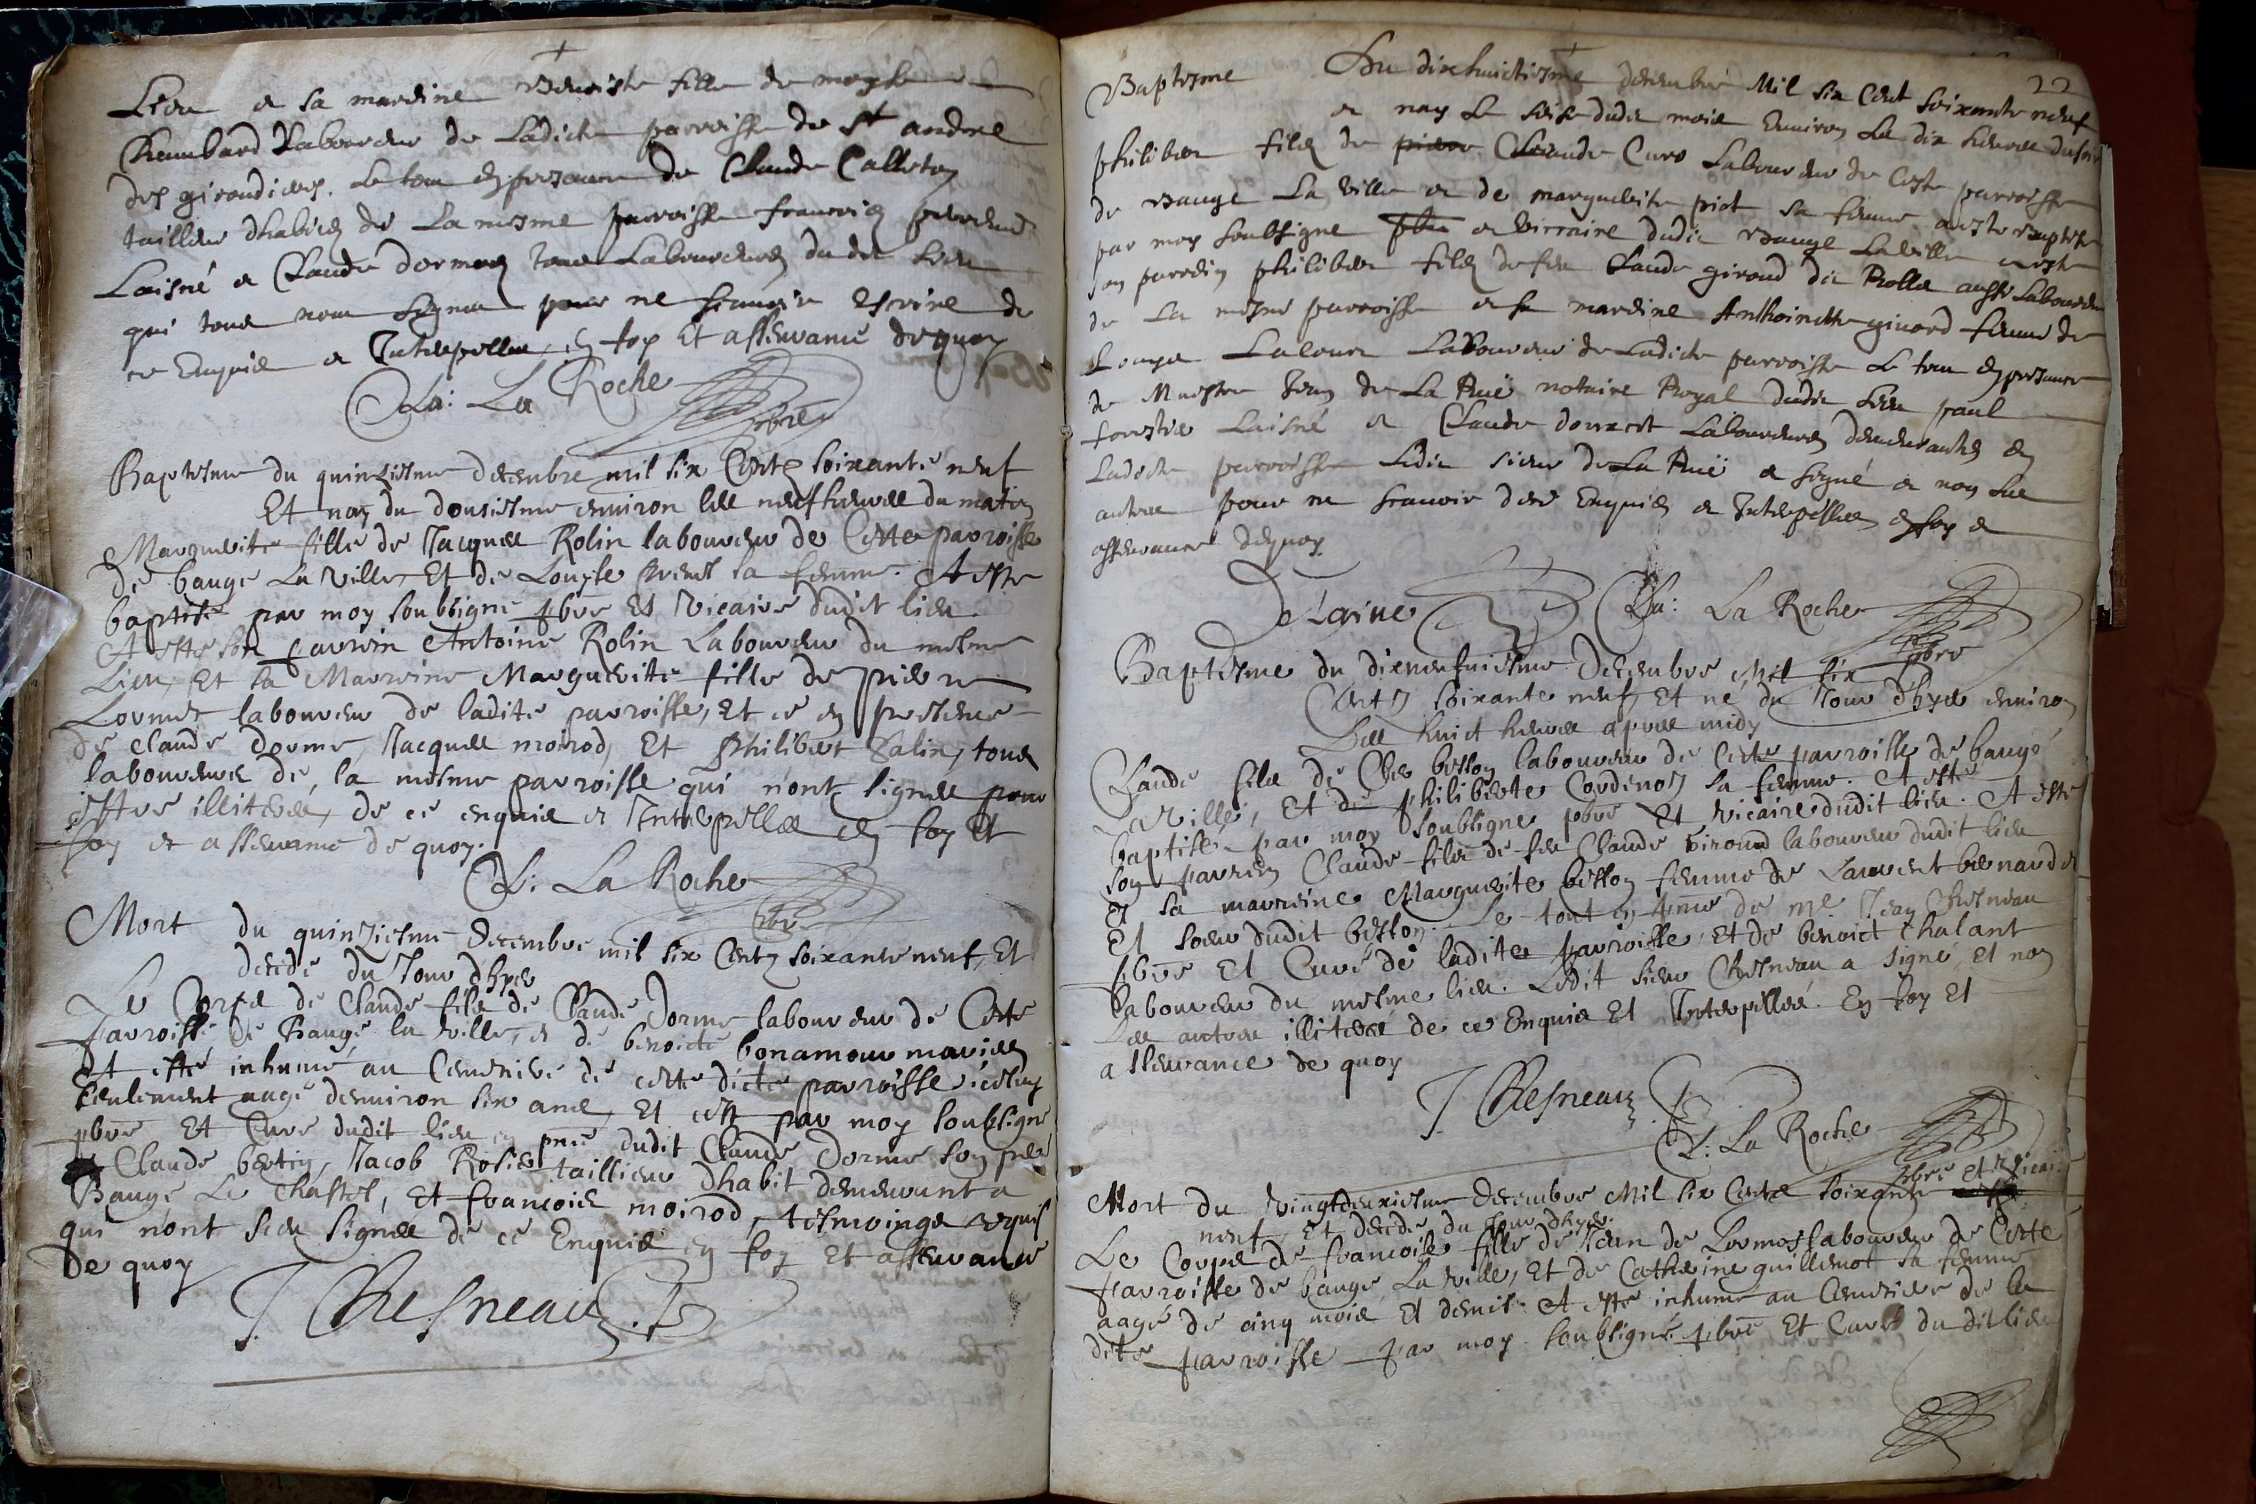 Lieu et sa mareine Benoiste fille de moyse
Chambard Laboureur de Ladicte parroisse de St andre
des giroudieres. Le tout en presence de Claude Calleton
tailleur dhabits de La mesme parroisse francois
Laisné et Claude dorme tous Laboureurs dudit Lieu
qui tous nont signes pour ne scavoir escrire de
ce Enquis et Interpelles, en foy et asseurance dequoy
Cla: La Roche
pbre
Baptesme du quinziesme decembre mil six Cents soixante neuf
Et nay du douziesme environ les neuf heures du matin
Marguerite fille de Jacques Rolin laboureur de Cette parroisse
de baugé La ville, Et de Louyse sa femme. A esté
baptisé par moy soubsigné pbre et vicaire dudit lieu
A esté son parrein Antoine Rolin Laboureur du mesme
Lieu, Et sa Marreine Marguerite fille de pierre
Lornet laboureur de ladite parroisse, Et ce en presence
de claude dorme, Jacques moirod, Et Philibert Salin, tous
laboureurs de la mesme parroisse qui n'ont signes pour
estre illiterés, de ce enquis et Interpelles en foy Et
foy et asseurance de quoy.
Cl: La Roche
pbre
Mort du quinziesme Decembre mil six Cents soixante neuf, Et
decedé du Jour d'hyer
Le Corps de Claude fils de Claude Dorme laboureur de Cette
parroisse de Baugé la ville, et de benoicte bonamour mariés
A esté inhumé au Cemetiere de cette dicte parroisse iceluy
seulement aagé denviron six ans, Et cest par moy soubsigné
pbre Et Curé dudit lieu en pnce dudit Claude Dorme son pere
Claude bertin, Jacob Rosier taillieur dhabit demeurant a
Baugé Le Chastel, Et francois moirod, tesmoings requis
qui n'ont sceu signés de ce Enquis en foy Et asseurance
De quoy
J. Chesneau.
22
Baptesme Du dixhuictiesme decembre Mil six Cent soixante neuf
et nay Le seise dudit mois Environ Les dix heures du soir
philibert fils de Claude Curo Laboureur de Ceste parroisse
de Bauge La ville et de marguerite piot sa femme a este baptisé
par moy soubsigne pbre et vicaire dudit Bauge Laville a este
son parrein philibert fils de feu Claude giroud dit Rolle aussy Laboureur
de La mesme parroisse et sa mareine Anthoinette girard femme de
Lacour Laboureur de Ladicte parroisse Le tout en presence
de Maistre Jean de La Rue notaire Royal dudit Lieu paul
Laisné et Claude Laboureurs demeurants en
Ladicte parroisse Ledit sieur de La Rue a signé et non les
autres pour ne scavoir dece Enquis et Interpelles en foy et
asseurance dequoy
Cla: La Roche
pbre
Baptesme du dixneufuiesme Decembre Mil six
Cents soixante neuf, Et né du Jour d'hyer environ
Les huict heures apres midy
Claude fils de Cler besson laboureur de Cette parroisse de baugé
La ville, Et de philiberte Cordenod sa femme. A esté
baptisé par moy soubsigne pbre Et vicaire dudit lieu. A esté
son parrein Claude fils de feu Claude giroud laboureur dudit lieu
Et sa marreine Marguerite besson femme de Laurent bernard
Et soeur dudit besson. Le tout en pnce de me Jean Chesneau
pbre Et Curé de ladite parroisse, Et de benoict Chalant
laboureur du mesme lieu. Ledit sieur Chesneau a signé, et non
Les autres illiterés de ce Enquis Et Interpellés. En foy Et
asseurance de quoy
J. Chesneau
Cl: La Roche
pbre et vicai.
Mort du vingtdeuxiesme Decembre Mil six Cents soixante
neuf, Et decedé du Jour dhyer.
Le Corps de francoise fille de Jean de Lormos laboureur de Cette
parroisse de baugé La ville, Et de Catherine guillemot sa femme
aagé de cinq mois Et demit. A esté inhumé au Cemetiere de la
dite parroisse par moy soubsigné pbre Et Curé du dit lieu